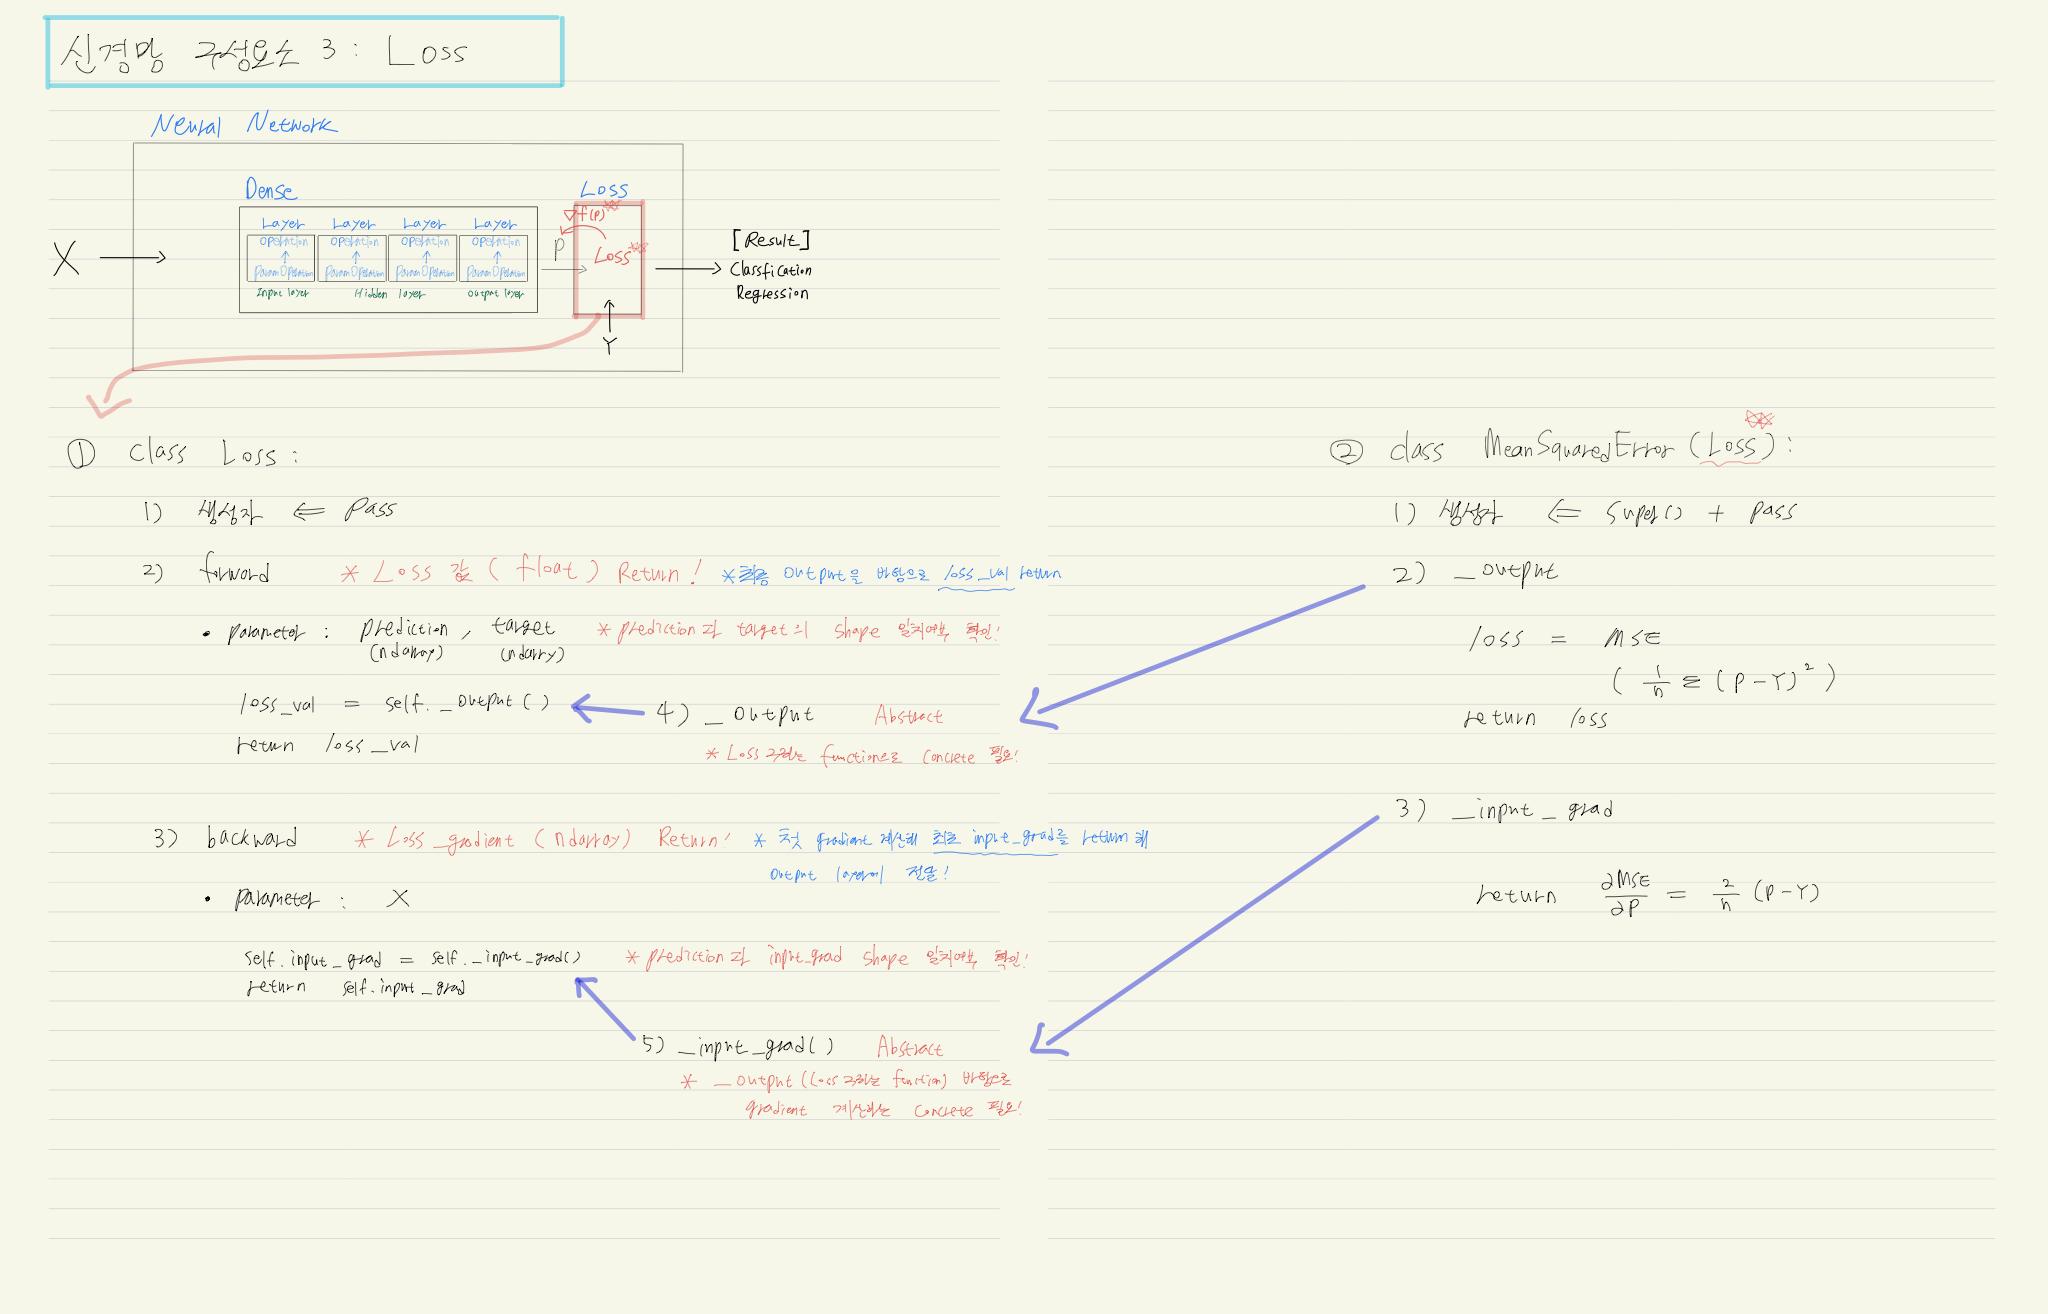 신경망 구성요소 3 : Loss
Neural Network
Dense
Loss
Layer Layer Layer Layer
Operation Operation Operation Operation
ParamOperation ParamOperation ParamOperation ParamOperation
Input layer Hidden layer Output layer
X
P
▽f(P)
Loss
Y
[Result]
Classfication
Regression
① Class Loss :
1) 생성자 ⇐ Pass
2) forword * Loss 값 (float) Return! * 최종 output을 바탕으로 loss_val return
• parameter : prediction, target * prediction과 target의 shape 일치여부 확인!
(ndarray) (ndarry)
loss_val = self._output()
return loss_val
4) _output Abstract
* Loss 구하는 function으로 Concrete 필요!
3) backward * Loss_gradient (ndarray) Return! * 첫 gradient 계산해 최초 input_grad를 return 해
output layer에 전달!
• parameter : X
self.input_grad = self._input_grad() * prediction과 input_grad shape 일치여부 확인!
return self.input_grad
5) _input_grad() Abstract
* _output (Loss 구하는 function) 바탕으로
gradient 계산하는 Concrete 필요!
② class MeanSquaredError (Loss) :
1) 생성자 ⇐ super() + pass
2) _output
loss = MSE
( 1/n Σ (P-Y)² )
return loss
3) _input_grad
return ∂MSE/∂P = 2/n (P-Y)